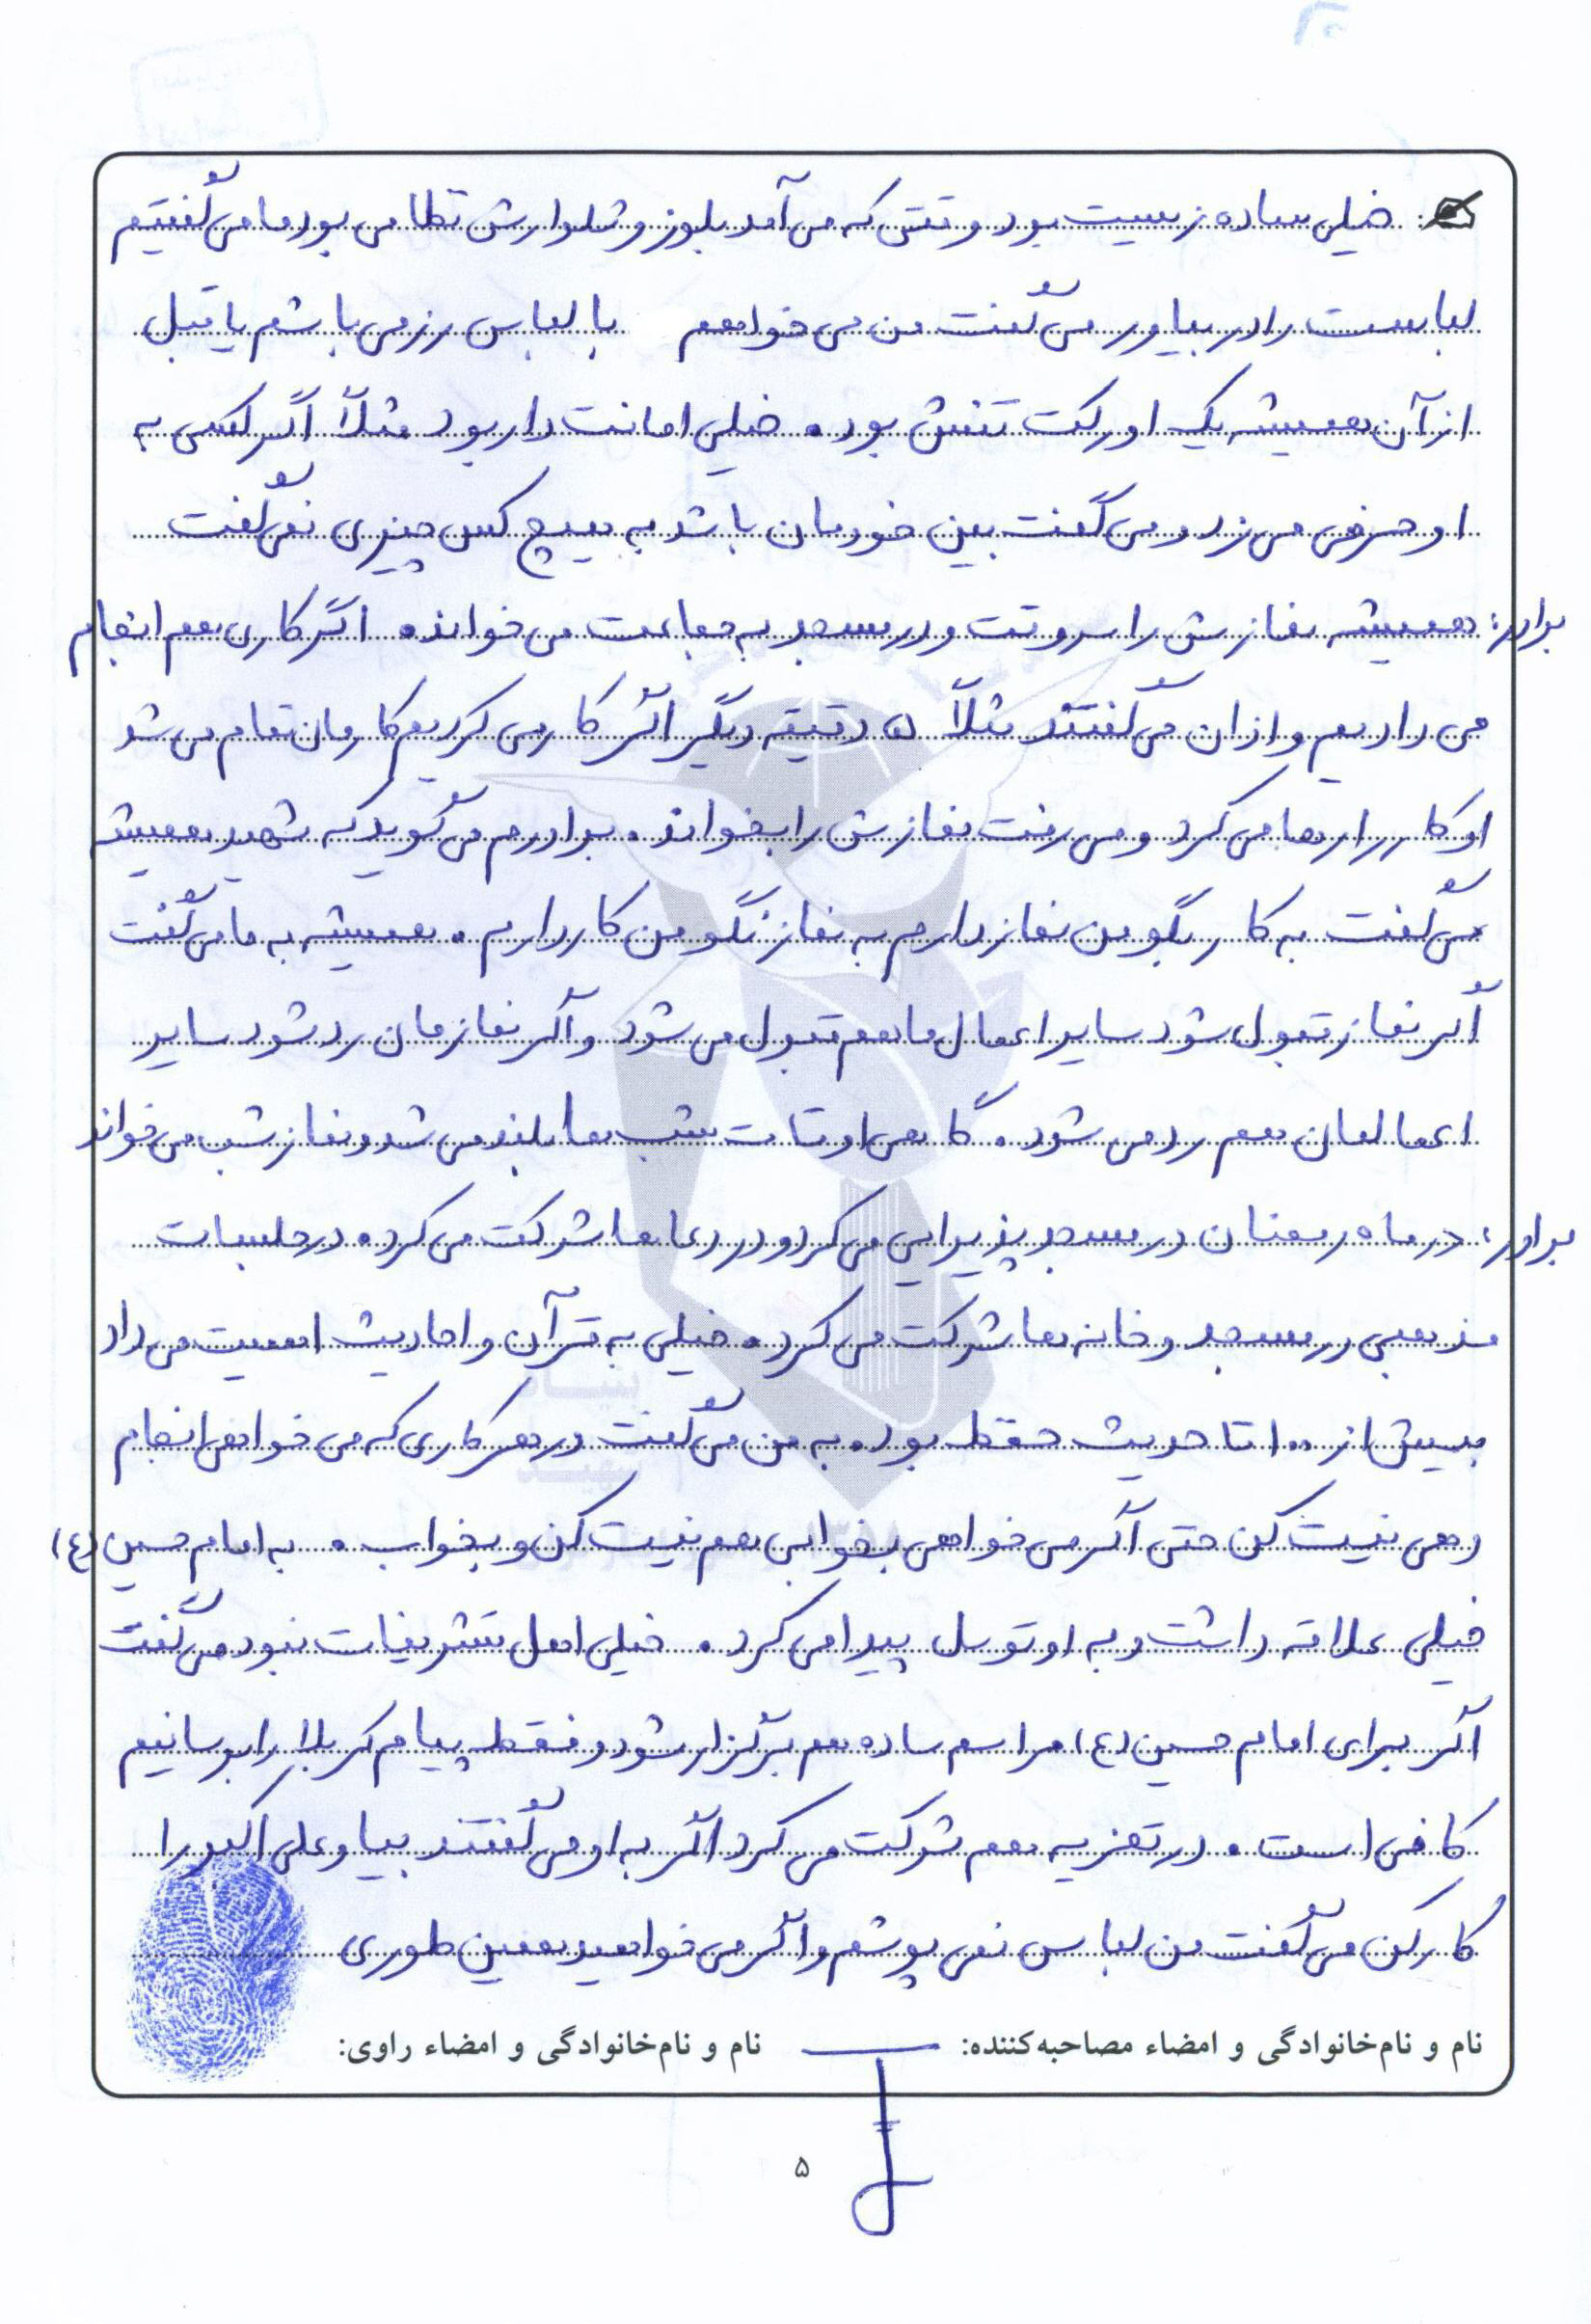 خیلی ساده زیست بود وقتی که می آمد بلوز و شلوارش نظامی بود ما می گفتیم
لباست را در بیاور می گفت من می خواهم با لباس رزمی باشم یا قبل
از آن همیشه یک اورکت تنش بود. خیلی امانت دار بود مثلاً اگر کسی به
او حرفی می زد و می گفت بین خودمان باشد به هیچ کس چیزی نمی گفت
برادر: همیشه نمازش را سر وقت و در مسجد به جماعت می خواند. اگر کاری هم انجام
می دادیم و اذان می گفتند مثلاً ۵ دقیقه دیگر اگر کار می کردیم کارمان تمام می شد
او کار را رها می کرد و می رفت نمازش را بخواند. برادرم می گوید که شهید همیشه
می گفت به کار بگو من نماز دارم به نماز نگو من کار دارم. همیشه به ما می گفت
اگر نماز قبول شود سایر اعمال ما هم قبول می شود و اگر نمازمان رد شود سایر
اعمالمان هم رد می شود. گاهی اوقات شب ها بلند می شد و نماز شب می خواند
برادر: در ماه رمضان در مسجد پذیرایی می کرد و در دعاها شرکت می کرد. در جلسات
مذهبی در مسجد و خانه ها شرکت می کرد. خیلی به قرآن و احادیث اهمیت می داد
بیش از ۱۰۰ تا حدیث حفظ بود. به من می گفت در هر کاری که می خواهی انجام
دهی نیت کن حتی اگر می خواهی بخوابی هم نیت کن و بخواب. به امام حسین (ع)
خیلی علاقه داشت و به او توسل پیدا می کرد. خیلی اهل تشریفات نبود می گفت
اگر برای امام حسین (ع) مراسم ساده هم برگزار شود و فقط پیام کربلا را برسانیم
کافی است. در تعزیه هم شرکت می کرد اگر به او می گفتند بیا و علی اکبر را
کار کن می گفت من لباس نمی پوشم و اگر می خواهید همین طوری
نام و نام خانوادگی و امضاء مصاحبه کننده: نام و نام خانوادگی و امضاء راوی:
۵